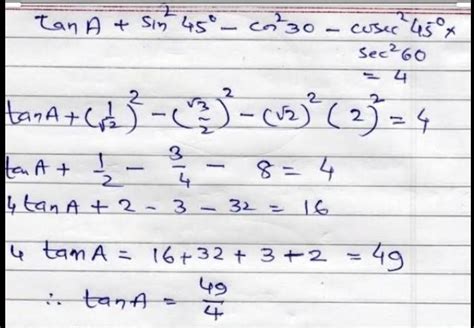 tan A + sin² 45° - cos² 30 - cosec² 45° ×
sec² 60
= 4
tan A + (1/√2)² - (√3/2)² - (√2)² (2)² = 4
tan A + 1/2 - 3/4 - 8 = 4
4 tan A + 2 - 3 - 32 = 16
4 tan A = 16 + 32 + 3 + 2 = 49
∴ tan A = 49/4